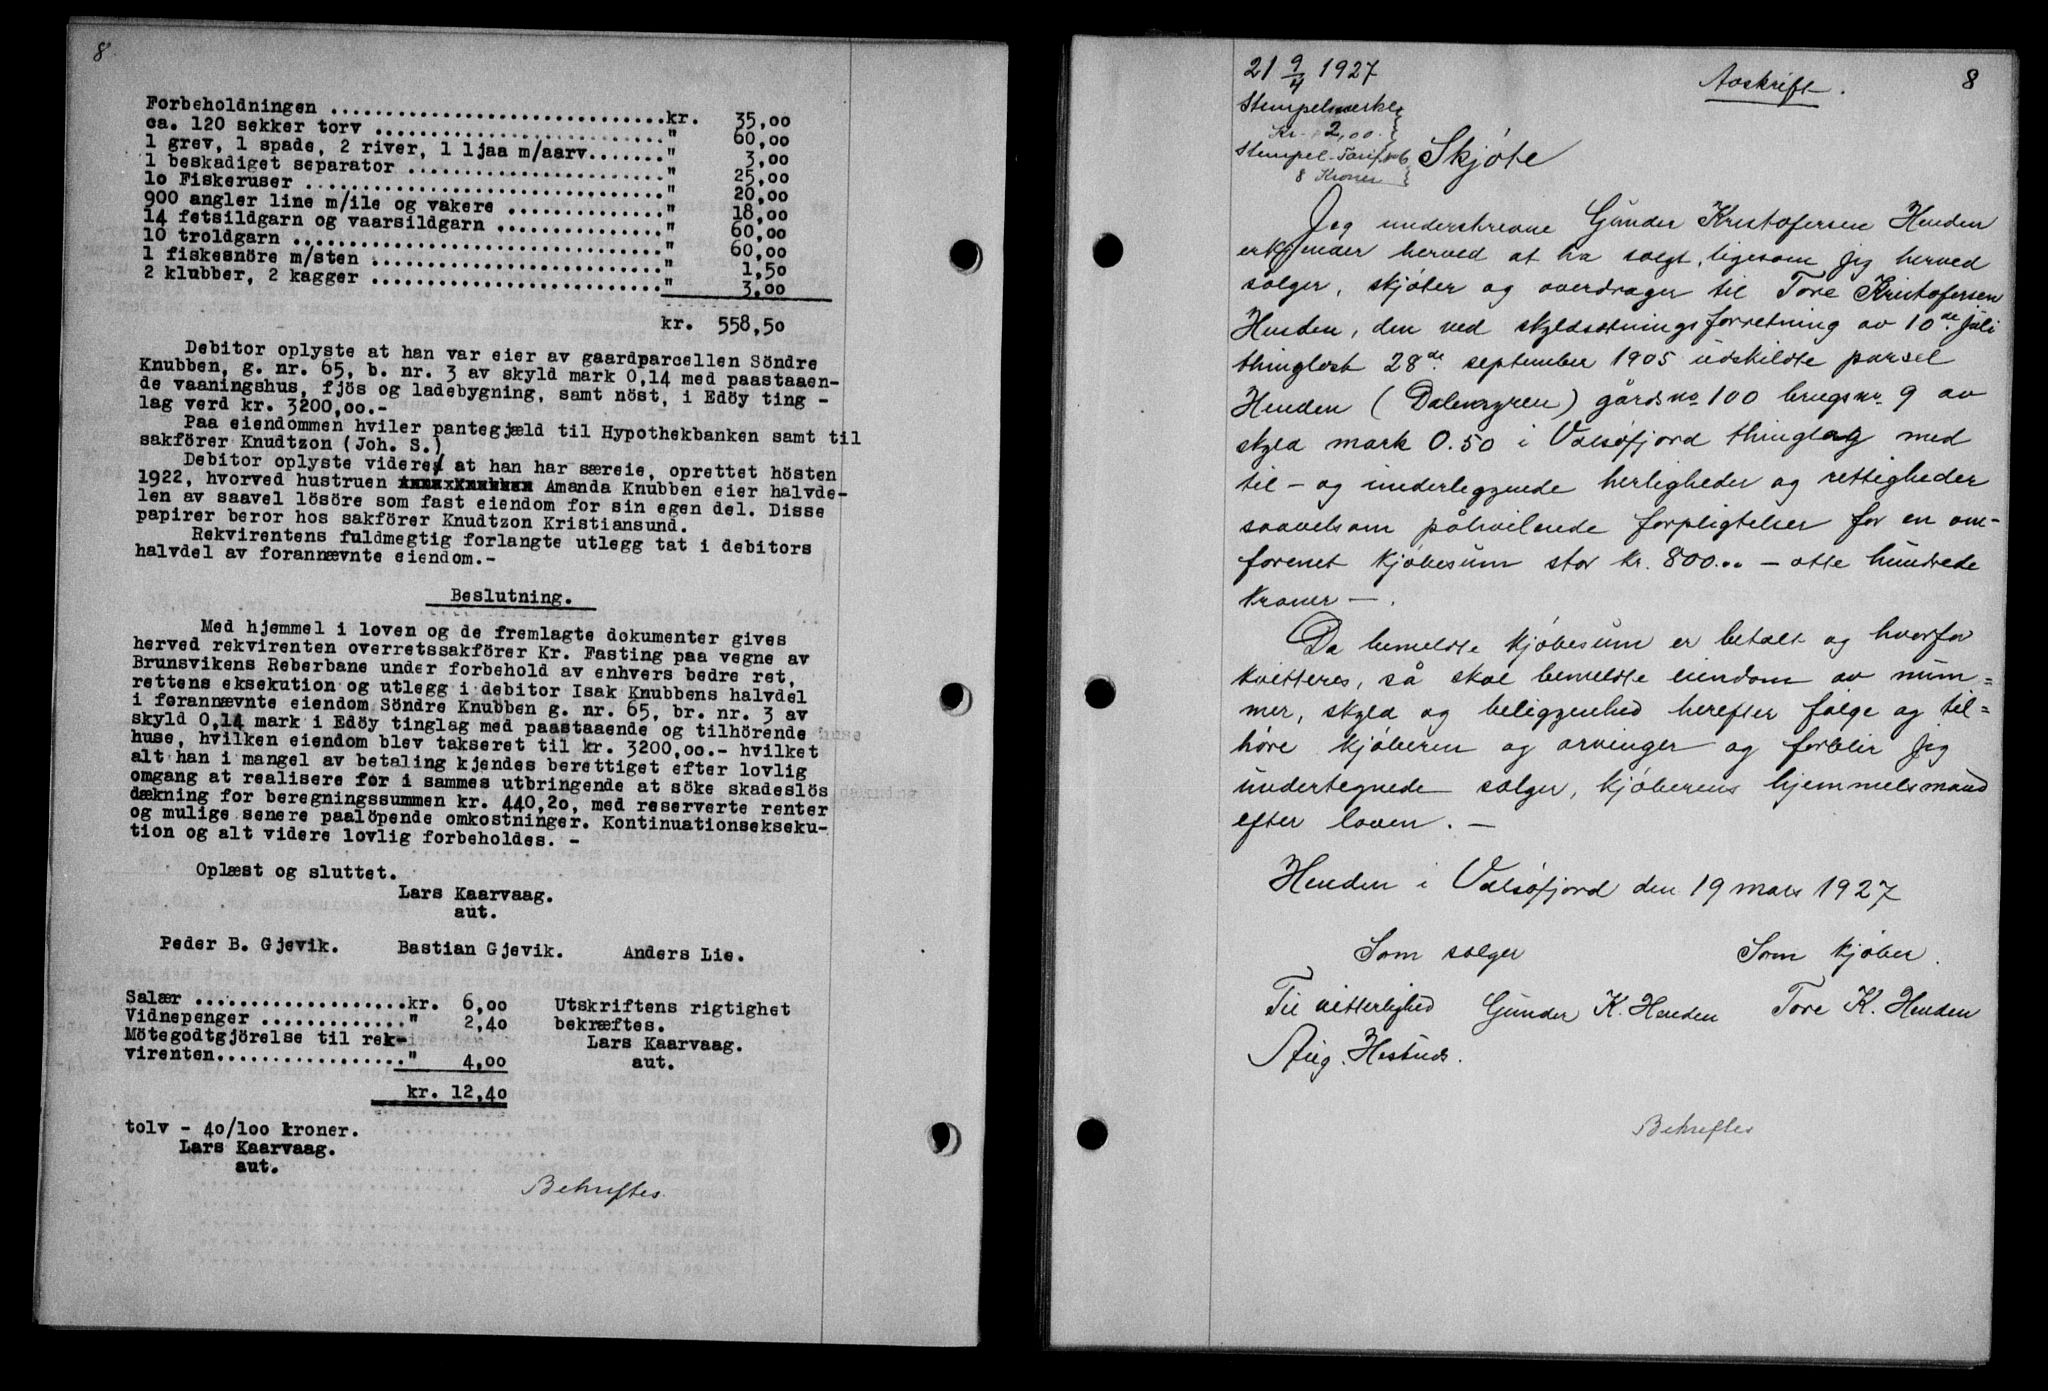 8
Forbeholdningen ................................kr. 35,00
ca. 120 sekker torv ............................" 60,00
1 grev, 1 spade, 2 river, 1 ljaa m/aarv......." 3,00
1 beskadiget separator ........................." 25,00
1o Fiskeruser .................................." 20,00
900 angler line m/ile og vakere ..............." 18,00
14 fetsildgarn og vaarsildgarn ................" 60,00
10 troldgarn ..................................." 60,00
1 fiskesnöre m/sten ............................" 1,50
2 klubber, 2 kagger ............................" 3,00
kr. 558,50
Debitor oplyste at han var eier av gaardparcellen Söndre
Knubben, g. nr. 65, b. nr. 3 av skyld mark 0,14 med paastaaen-
de vaaningshus, fjös og ladebygning, samt nöst, i Edöy ting -
lag verd kr. 3200,oo.-
Paa eiendommen hviler pantegjæld til Hypothekbanken samt til
sakförer Knudtzon (Joh. S.)
Debitor oplyste videre, at han har særeie, oprettet hösten
1922, hvorved hustruen Amanda Knubben eier halvde-
len av saavel lösöre som fast eiendom for sin egen del. Disse
papirer beror hos sakförer Knudtzon Kristiansund.
Rekvirentens fuldmegtig forlangte utlegg tat i debitors
halvdel av forannævnte eiendom.-
Beslutning.
Med hjemmel i loven og de fremlagte dokumenter gives
herved rekvirenten overretssakförer Kr. Fasting paa vegne av
Brunsvikens Reberbane under forbehold av enhvers bedre ret,
rettens eksekution og utlegg i debitor Isak Knubbens halvdel
i forannævnte eiendom Söndre Knubben g. nr. 65, br. nr. 3 av
skyld 0,14 mark i Edöy tinglag med paastaaende og tilhörende
huse, hvilken eiendom blev takseret til kr. 3200,oo.- hvilket
alt han i mangel av betaling kjendes berettiget efter lovlig
omgang at realisere for i sammes utbringende at söke skadeslös
dækning for beregningssummen kr. 440,2o, med reserverte renter
og mulige senere paalöpende omkostninger. Kontinuationsekseku-
tion og alt videre lovlig forbeholdes. -
Oplæst og sluttet.
Lars Kaarvaag.
aut.
Peder B. Gjevik. Bastian Gjevik. Anders Lie.
Salær .....................kr. 6,00
Vidnepenger .............." 2,40
Mötegodtgjörelse til rek-
virenten..................." 4,00
kr. 12,40
Utskriftens rigtighet
bekræftes.
Lars Kaarvaag.
aut.
tolv - 4o/1oo kroner.
Lars Kaarvaag.
aut.
Bekreftes
8
21 9/4 1927
Avskrift.
Stempelmerke
Kr. 2,00
Stempel-Tarif
8 Kroner
Skjøte
Jeg underskrevne Gunder Kristofersen Henden
erkjender herved at ha solgt, ligesom jeg herved
sælger, skjøter og overdrager til Tore Kristofersen
Henden, den ved skyldsætningsforretning av 10de juli
thinglæst 28de september 1905 udskildte parsel
Henden ( ) gårdsno 100 brugsno 9 av
skyld mark 0.50 i Valsøfjord thinglag med
til- og underliggende herligheder og rettigheder
saavelsom påhvilende forpligtelser for en om-
forenet kjøbesum stor kr. 800.00 - otte hundrede
kroner -.
Da bemeldte kjøbesum er betalt og hvorfor
kvitteres, så skal bemeldte eiendom av num=
mer, skyld og beliggenhed herefter følge og til=
høre kjøberen og arvinger og forblir jeg
undertegnede sælger, kjøberens hjemmelsmand
efter loven. -
Henden i Valsøfjord den 19 mars 1927
Som sælger Som kjøber.
Til vitterlighed Gunder K. Henden Tore K. Henden
Aug. Hestnes.
Bekreftes